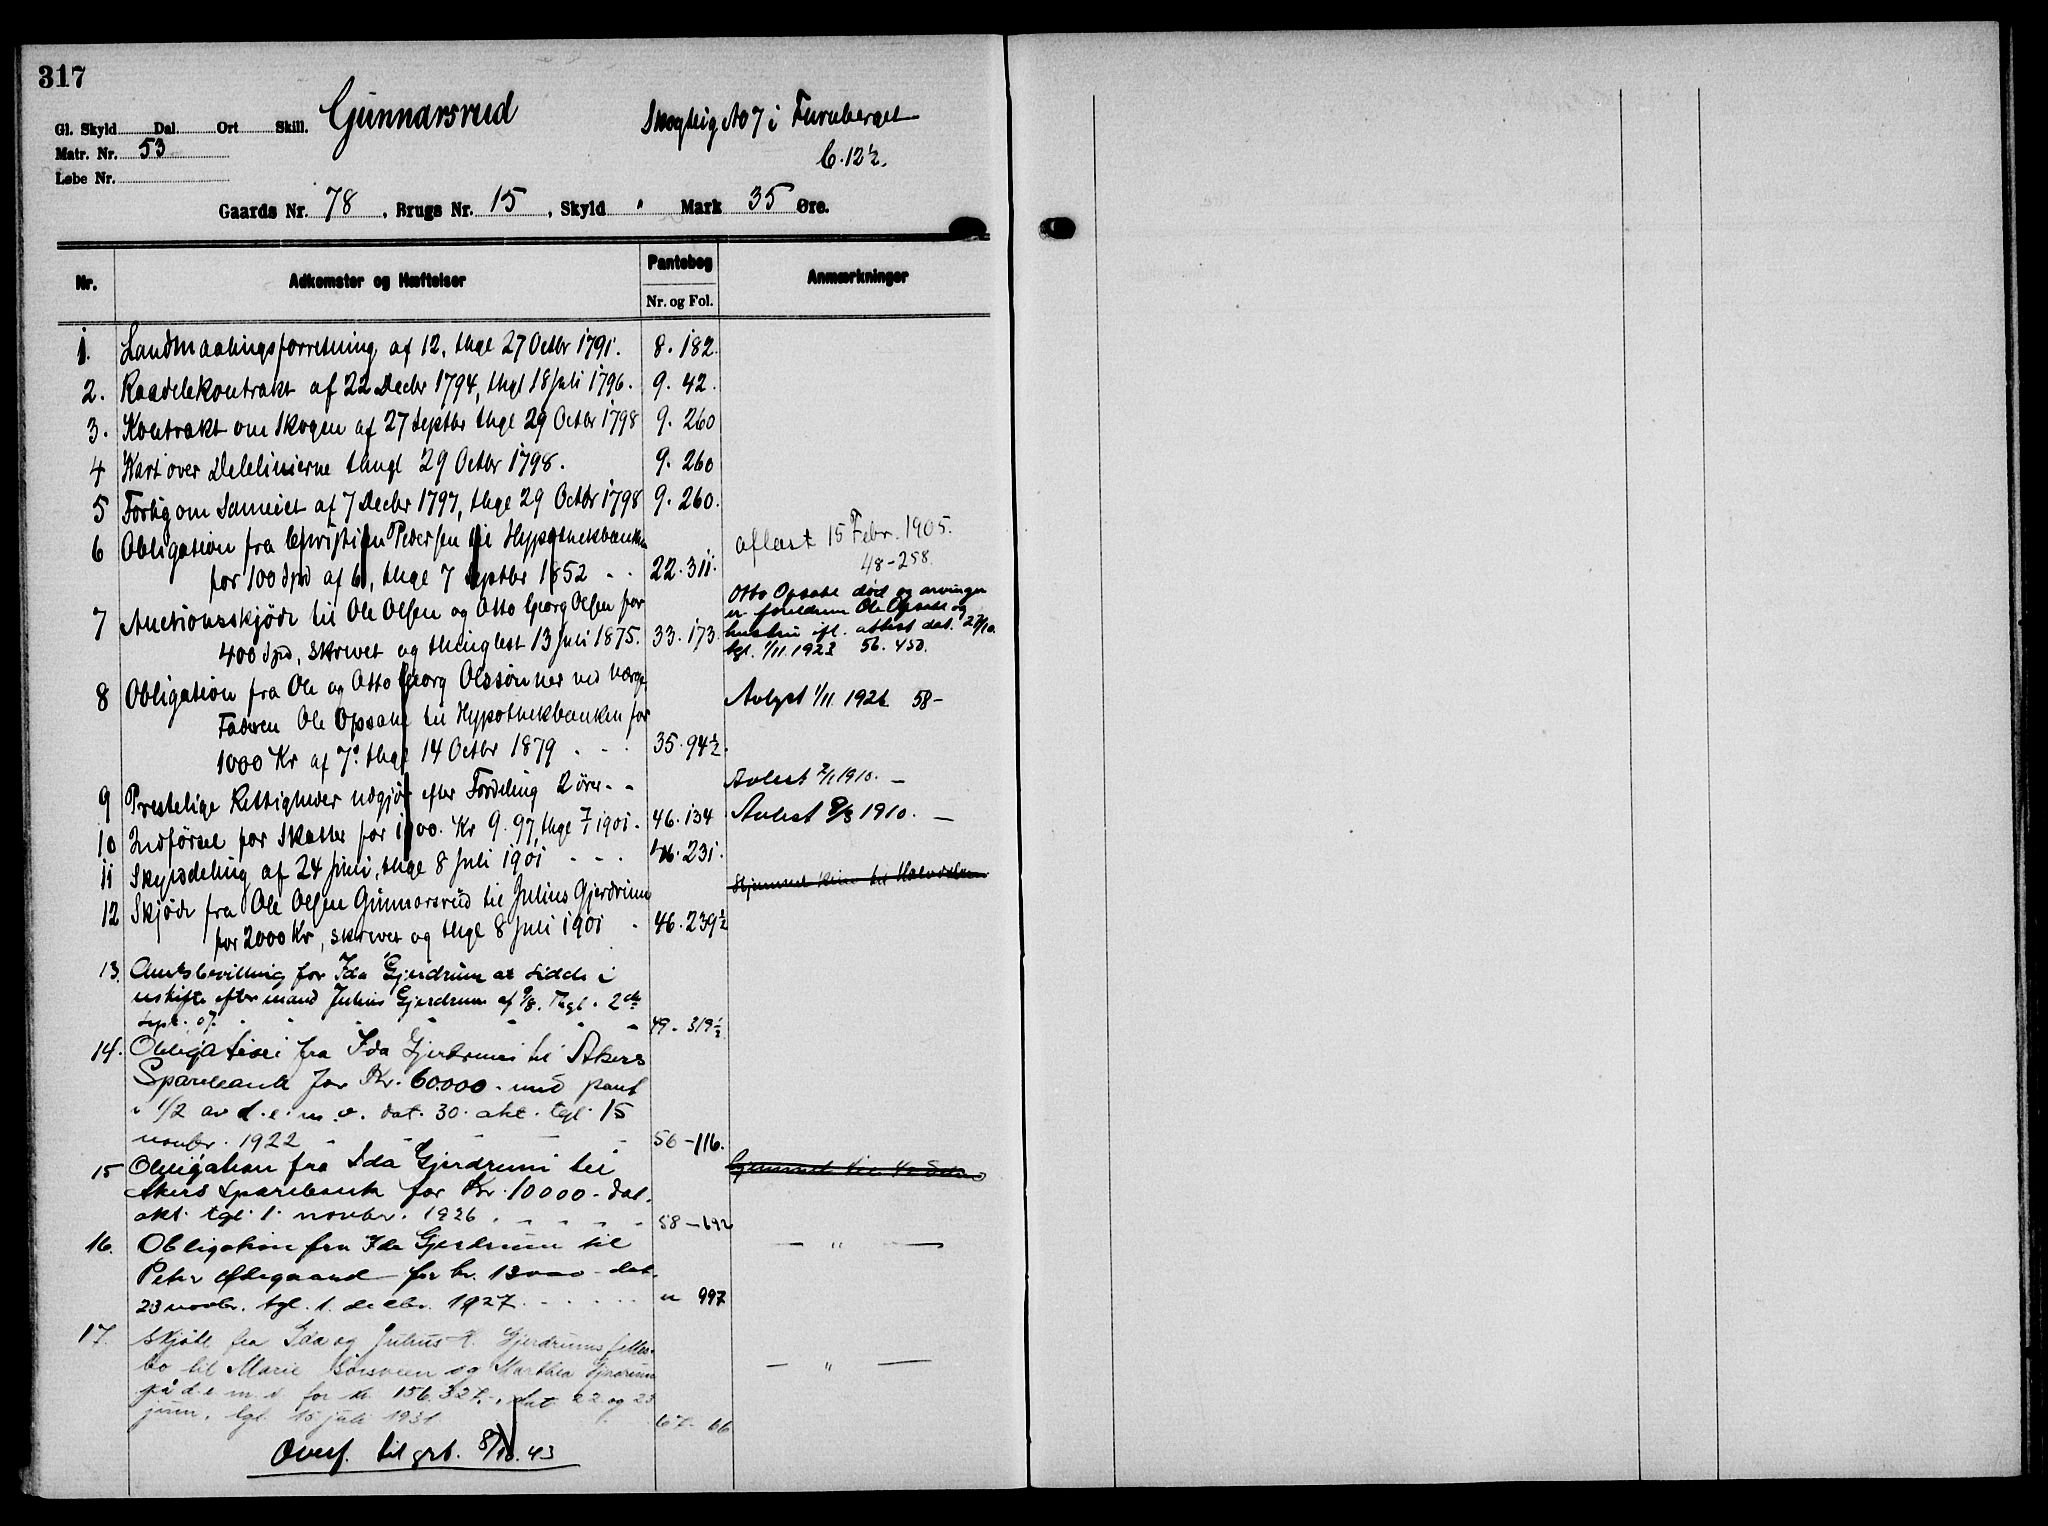 317
Gl. Skyld Dal Ort Skill. Gunnarsrud Skogteig No 7 i Furuberget
Matr. Nr. 53 C. 12½.
Løbe Nr.
Gaards Nr. 78, Brugs Nr. 15, Skyld " Mark 35 Øre.
Nr. Adkomster og Hæftelser Pantebog Anmærkninger
Nr. og Fol.
1. Landmaalingsforretning af 12, thgl 27 Octbr 1791. 8. 182.
2. Raadelekontrakt af 22 Decbr 1794, thgl 18 Juli 1796. 9. 42.
3. Kontrakt om Skogen af 27 Septbr thgl 29 Octbr 1798 9. 260
4 Kart over Delelinierne thngl 29 Octbr 1798. 9. 260
5 Forlig om Sameiet af 7 Decbr 1797, thgl 29 Octbr 1798 9. 260.
6 Obligation fra Christian Pedersen til Hypothekbanken aflæst 15 Febr. 1905.
for 100 Spd af 6, thgl 7 Septbr 1852 - . 22. 311. 48-258.
7 Auctionsskjøde til Ole Olsen og Otto Georg Olsen for Otto Opsahl død og arvinger
400 Spd, skrevet og thinglæst 13 Juli 1875. 33. 173. er foreldrene Ole Opsahl og
hustru ifl. attest dat. 27/10.
tgl. 1/11. 1923 56. 450.
8 Obligation fra Ole og Otto Georg Olssønner ved Værge Avlyst 1/11 1926 58-
Faderen Ole Opsahl til Hypothekbanken for
1000 Kr af 7. thgl 14 Octbr 1879 . - . 35. 94½.
9 Prestelige Rettigheder udgjør efter Fordeling 2 örer - - Avlæst 7/1 1910. -
10 Indførsel for Skatter for 1900. Kr 9.97, thgl 1901. 46. 134 Avlæst 9/3 1910. -
11 Skylddeling af 24 Juni, thgl 8 Juli 1901 - - . 46. 231.
12 Skjøde fra Ole Olsen Gunnarsrud til Julius Gjerdrum Hjemmel kun til Halvdelen
for 2000 Kr, skrevet og thgl 8 Juli 1901 . 46. 239½
13. Amtsbevilling for Ida Gjerdrum at sidde i
uskifte efter mand Julius Gjerdrum af 9/8. Thgl. 2den
Sept. 07. 49. 319½
14. Obligation fra Ida Gjerdrum til Akers
Sparebank for Kr. 60.000.- med pant
i 1/2 av d.e.m.v. dat. 30. okt. tgl. 15
novbr. 1922 56-116.
15 Obligation fra Ida Gjerdrum til
Akers Sparebank for Kr. 10000.- dat.
okt. tgl. 1. novbr. 1926. 58-692
16. Obligation fra Ida Gjerdrum til - " -
Peter Ødegaard for kr. 13000 - dat.
23 novbr. tgl. 1. decbr. 1927. " 997
17. Skjøte fra Ida og Julius H. Gjerdrums felles-
bo til Marie Sørsveen og Marthea Gjerdrum - " -
på d.e.m.v. for kr. 156.327.-, dat. 22. og 23
juni, tgl. 15 juli 1931. 67. 66
Overf. til grb. 8/10. 43